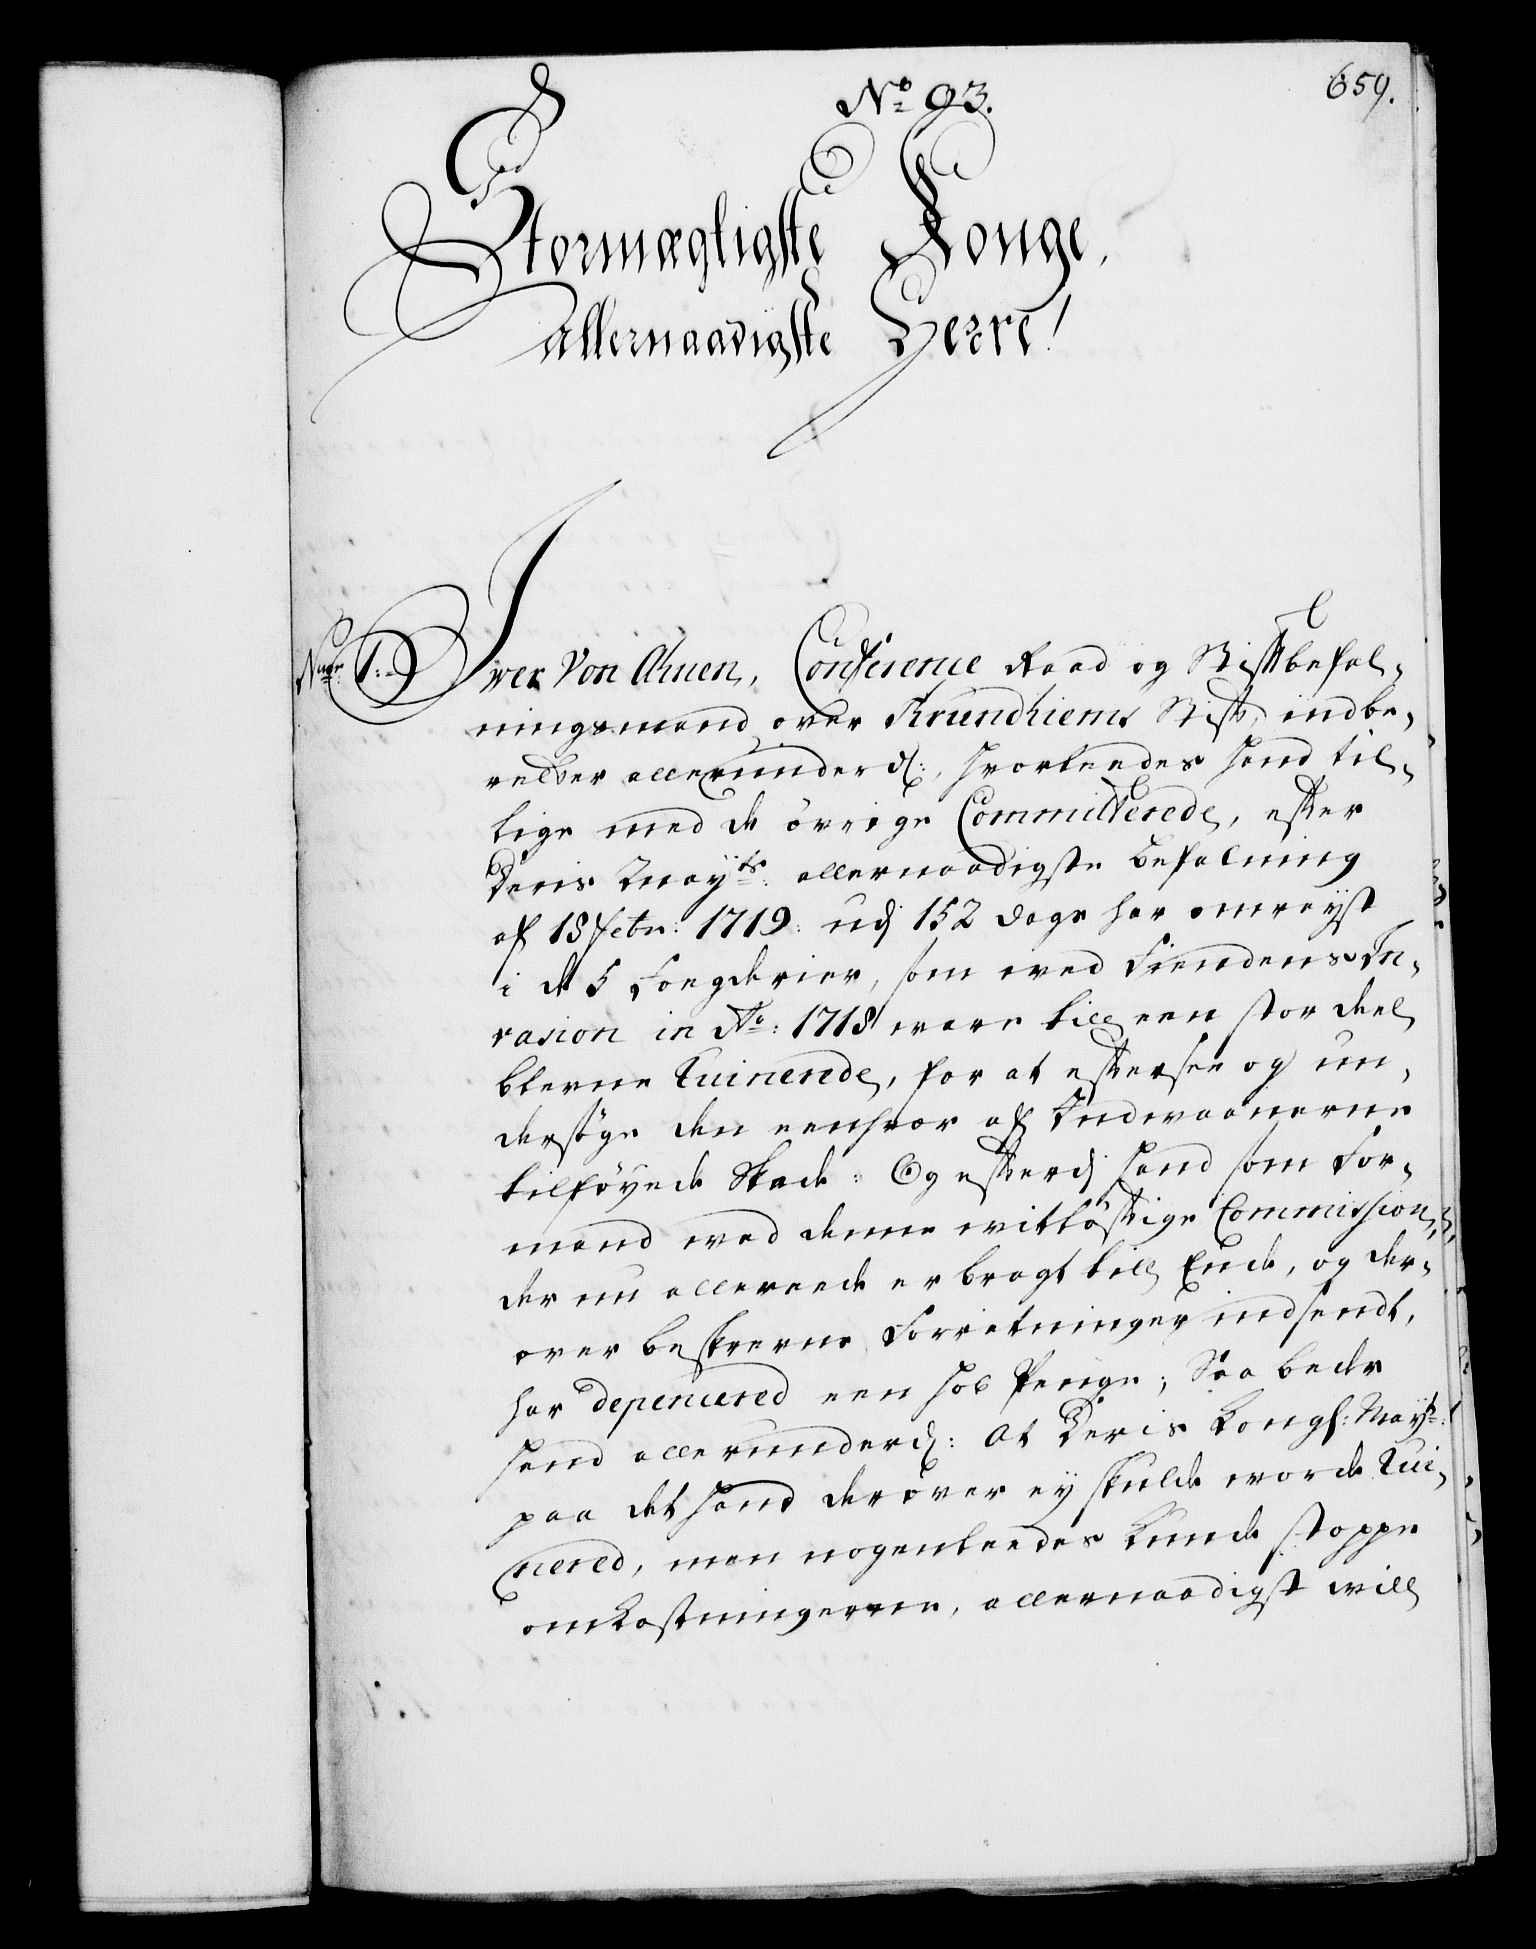 659.
No 93.
Stormægtigste Konge,
Allernaadigste Herre!
Numr: 1: Iver Von Ahnen, Conference Raad og Stiftbefal-
ningsmand over Trundhiems Stift, indbe-
retter allerunderd:, hvorleedes hand til-
lige med de övrige Committerede, efter
Deris Mayts: allernaadigste befalning
af 18 Febr: 1719: udj 152 dage har omreyst
i de 5 Fogderier, som ved Fiendens In-
vasion in Ao: 1718 vare till een stor deel
blevne Ruinerede, for at eftersee og un-
dersöge den eenhver af Indvaanerne
tilföyede Skade: Og efterdj hand som For-
mand ved denne vitlöftige Commission,
der nu allereede er bragt till Ende, og der-
over beskrevne Forretninger indsendt,
har depencered een hob Penge; Saa beder
hand allerunderd: At Deris Kongl: Mayt:
paa det hand derover ey skulde vorde Rui-
nered, men nogenleedes kunde stoppe
omkostningerne, allernaadigst will